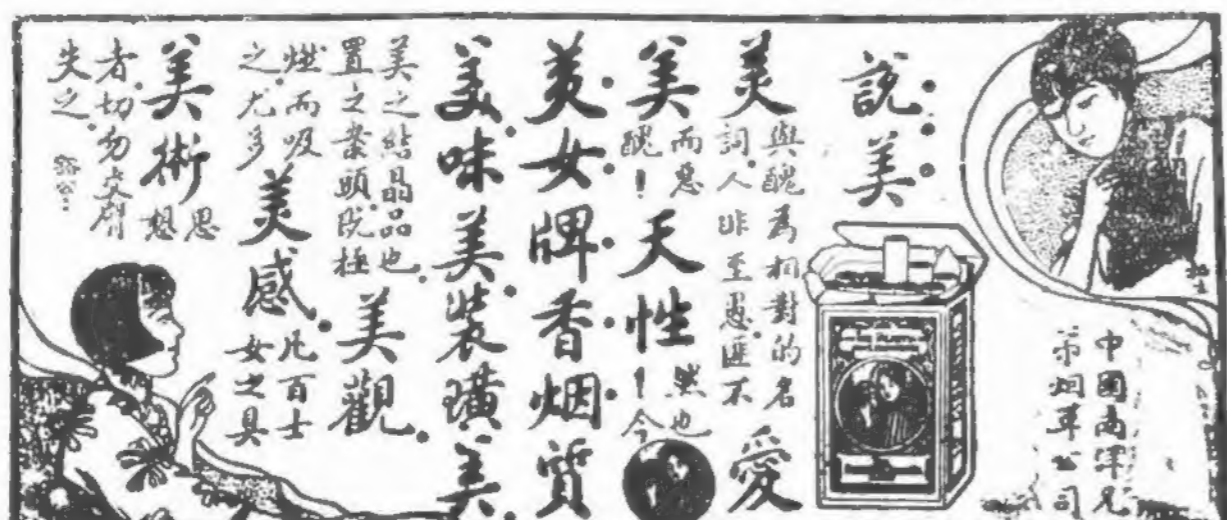 說美
美
與醜為相對的名
詞。人非至愚。匪不
愛
美
而惡
醜!
天性
然也
!今
美女牌香烟質
美味美裝璜美。
美之結晶品也。
置之案頭。既極
美觀。
燃而吸
之。尤多
美感。
凡百士
女之具
美術
思
想
者。切勿交臂
失之。
中國南洋兄
弟烟草公司